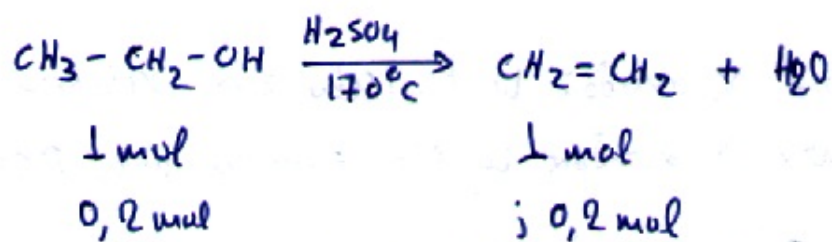 CH3 - CH2 - OH H2SO4 170°C → CH2 = CH2 + H2O
1 mol 1 mol
0,2 mol ; 0,2 mol